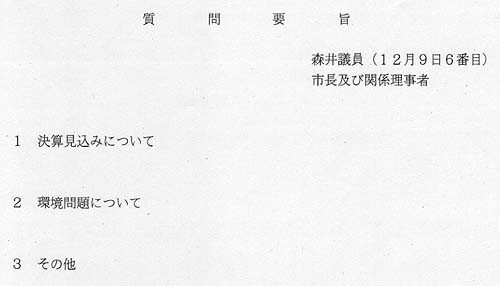 質問要旨
森井議員（１２月９日６番目）
市長及び関係理事者
１　決算見込みについて
２　環境問題について
３　その他